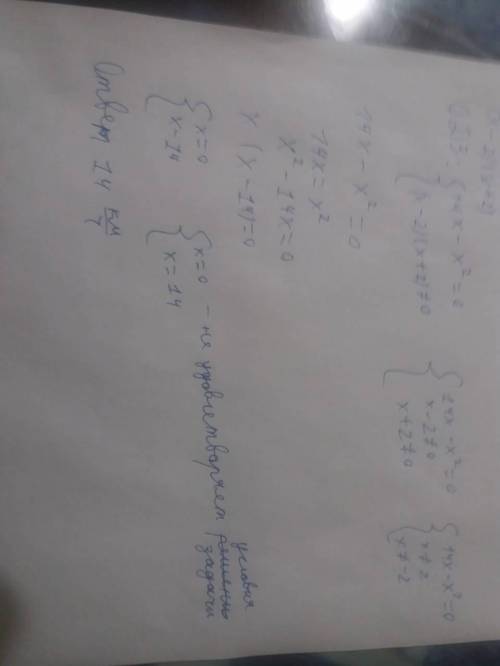 ОДЗ: { 14x - x² = 0 { 14x - x² = 0 { 14x - x² = 0
(x - 2)(x + 2) ≠ 0 x - 2 ≠ 0 x ≠ 2
x + 2 ≠ 0 x ≠ -2
14x - x² = 0
14x = x²
x² - 14x = 0
x (x - 14) = 0
{ x = 0 { x = 0 - не удовлетворяет условия
x - 14 x = 14 задачи
Ответ 14 км/ч